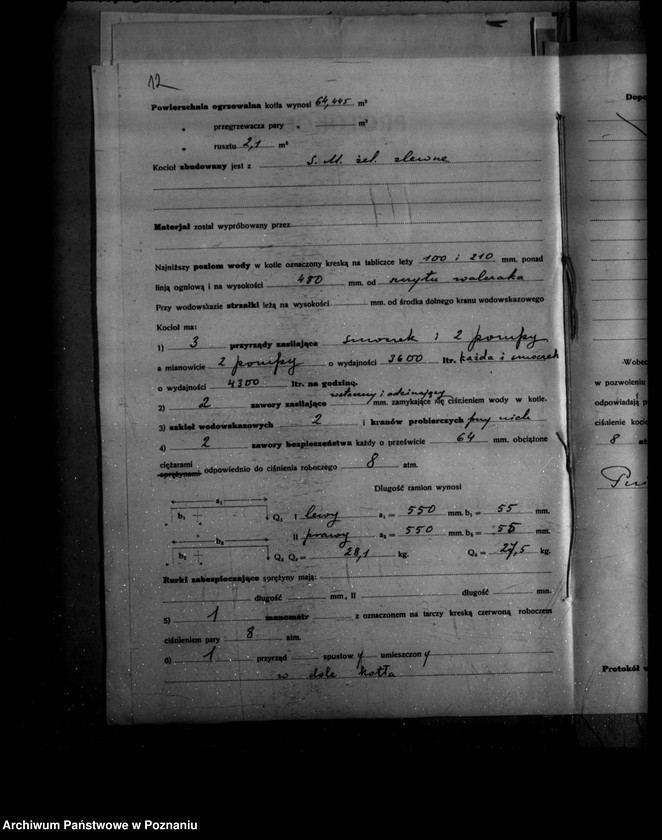 12
Powierzchnia ogrzewalna kotła wynosi 64,445 m²
„ przegrzewacza pary „ m²
„ rusztu 2,1 m²
Kocioł zbudowany jest z S. M. żel. zlewne
Materjał został wypróbowany przez
Najniższy poziom wody w kotle oznaczony kreską na tabliczce leży 100 i 210 mm. ponad
linją ogniową i na wysokości 480 mm. od walczaka
Przy wodowskazie strzałki leżą na wysokości mm. od środka dolnego kranu wodowskazowego
Kocioł ma:
1) 3 przyrządy zasilające smoczek i 2 pompy
a mianowicie 2 pompy o wydajności 3600 ltr. każda i smoczek
o wydajności 4300 ltr. na godzinę.
wsteczny i odcinający
2) 2 zawory zasilające mm. zamykające się ciśnieniem wody w kotle.
3) szkieł wodowskazowych 2 i kranów probierczych przy nich
4) 2 zawory bezpieczeństwa każdy o prześwicie 64 mm. obciążone
ciężarami
sprężynami odpowiednio do ciśnienia roboczego 8 atm.
Długość ramion wynosi
a₁
b₁ Q₁ I lewy a₁ = 550 mm. b₁ = 55 mm.
II prawy a₂ = 550 mm. b₂ = 55 mm.
b₂ Q₂ Q₁ = 28,1 kg. Q₂ = 27,5 kg.
Rurki zabezpieczające sprężyny mają:
długość mm., II długość mm.
5) 1 manometr z oznaczonem na tarczy kreską czerwoną roboczem
ciśnieniem pary 8 atm.
6) 1 przyrząd spustowy umieszczony
w dole kotła
Dopo
-Wobec
w pozwoleniu
odpowiadają p
ciśnienie kocio
8 at
Protokół w
Archiwum Państwowe w Poznaniu